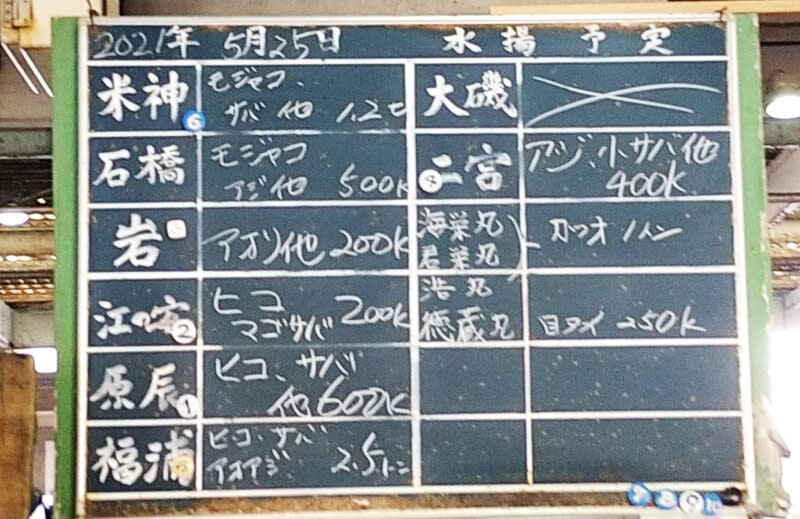 2021年 5月25日 水揚予定
米神
6
モジャコ、
サバ他 1.2t
石橋
モジャコ
アジ他 500K
岩
アオリ他 200K
江の安
2
ヒコ
マゴサバ 200K
原辰
1
ヒコ、サバ
他600K
福浦
ヒコ、サバ
アオアジ 2.5トン
大磯
二宮
8
アジ、小サバ他
400K
海栄丸
君栄丸
カツオ 1トン
浩丸
徳蔵丸
目ダイ 250K
7 8 9 10